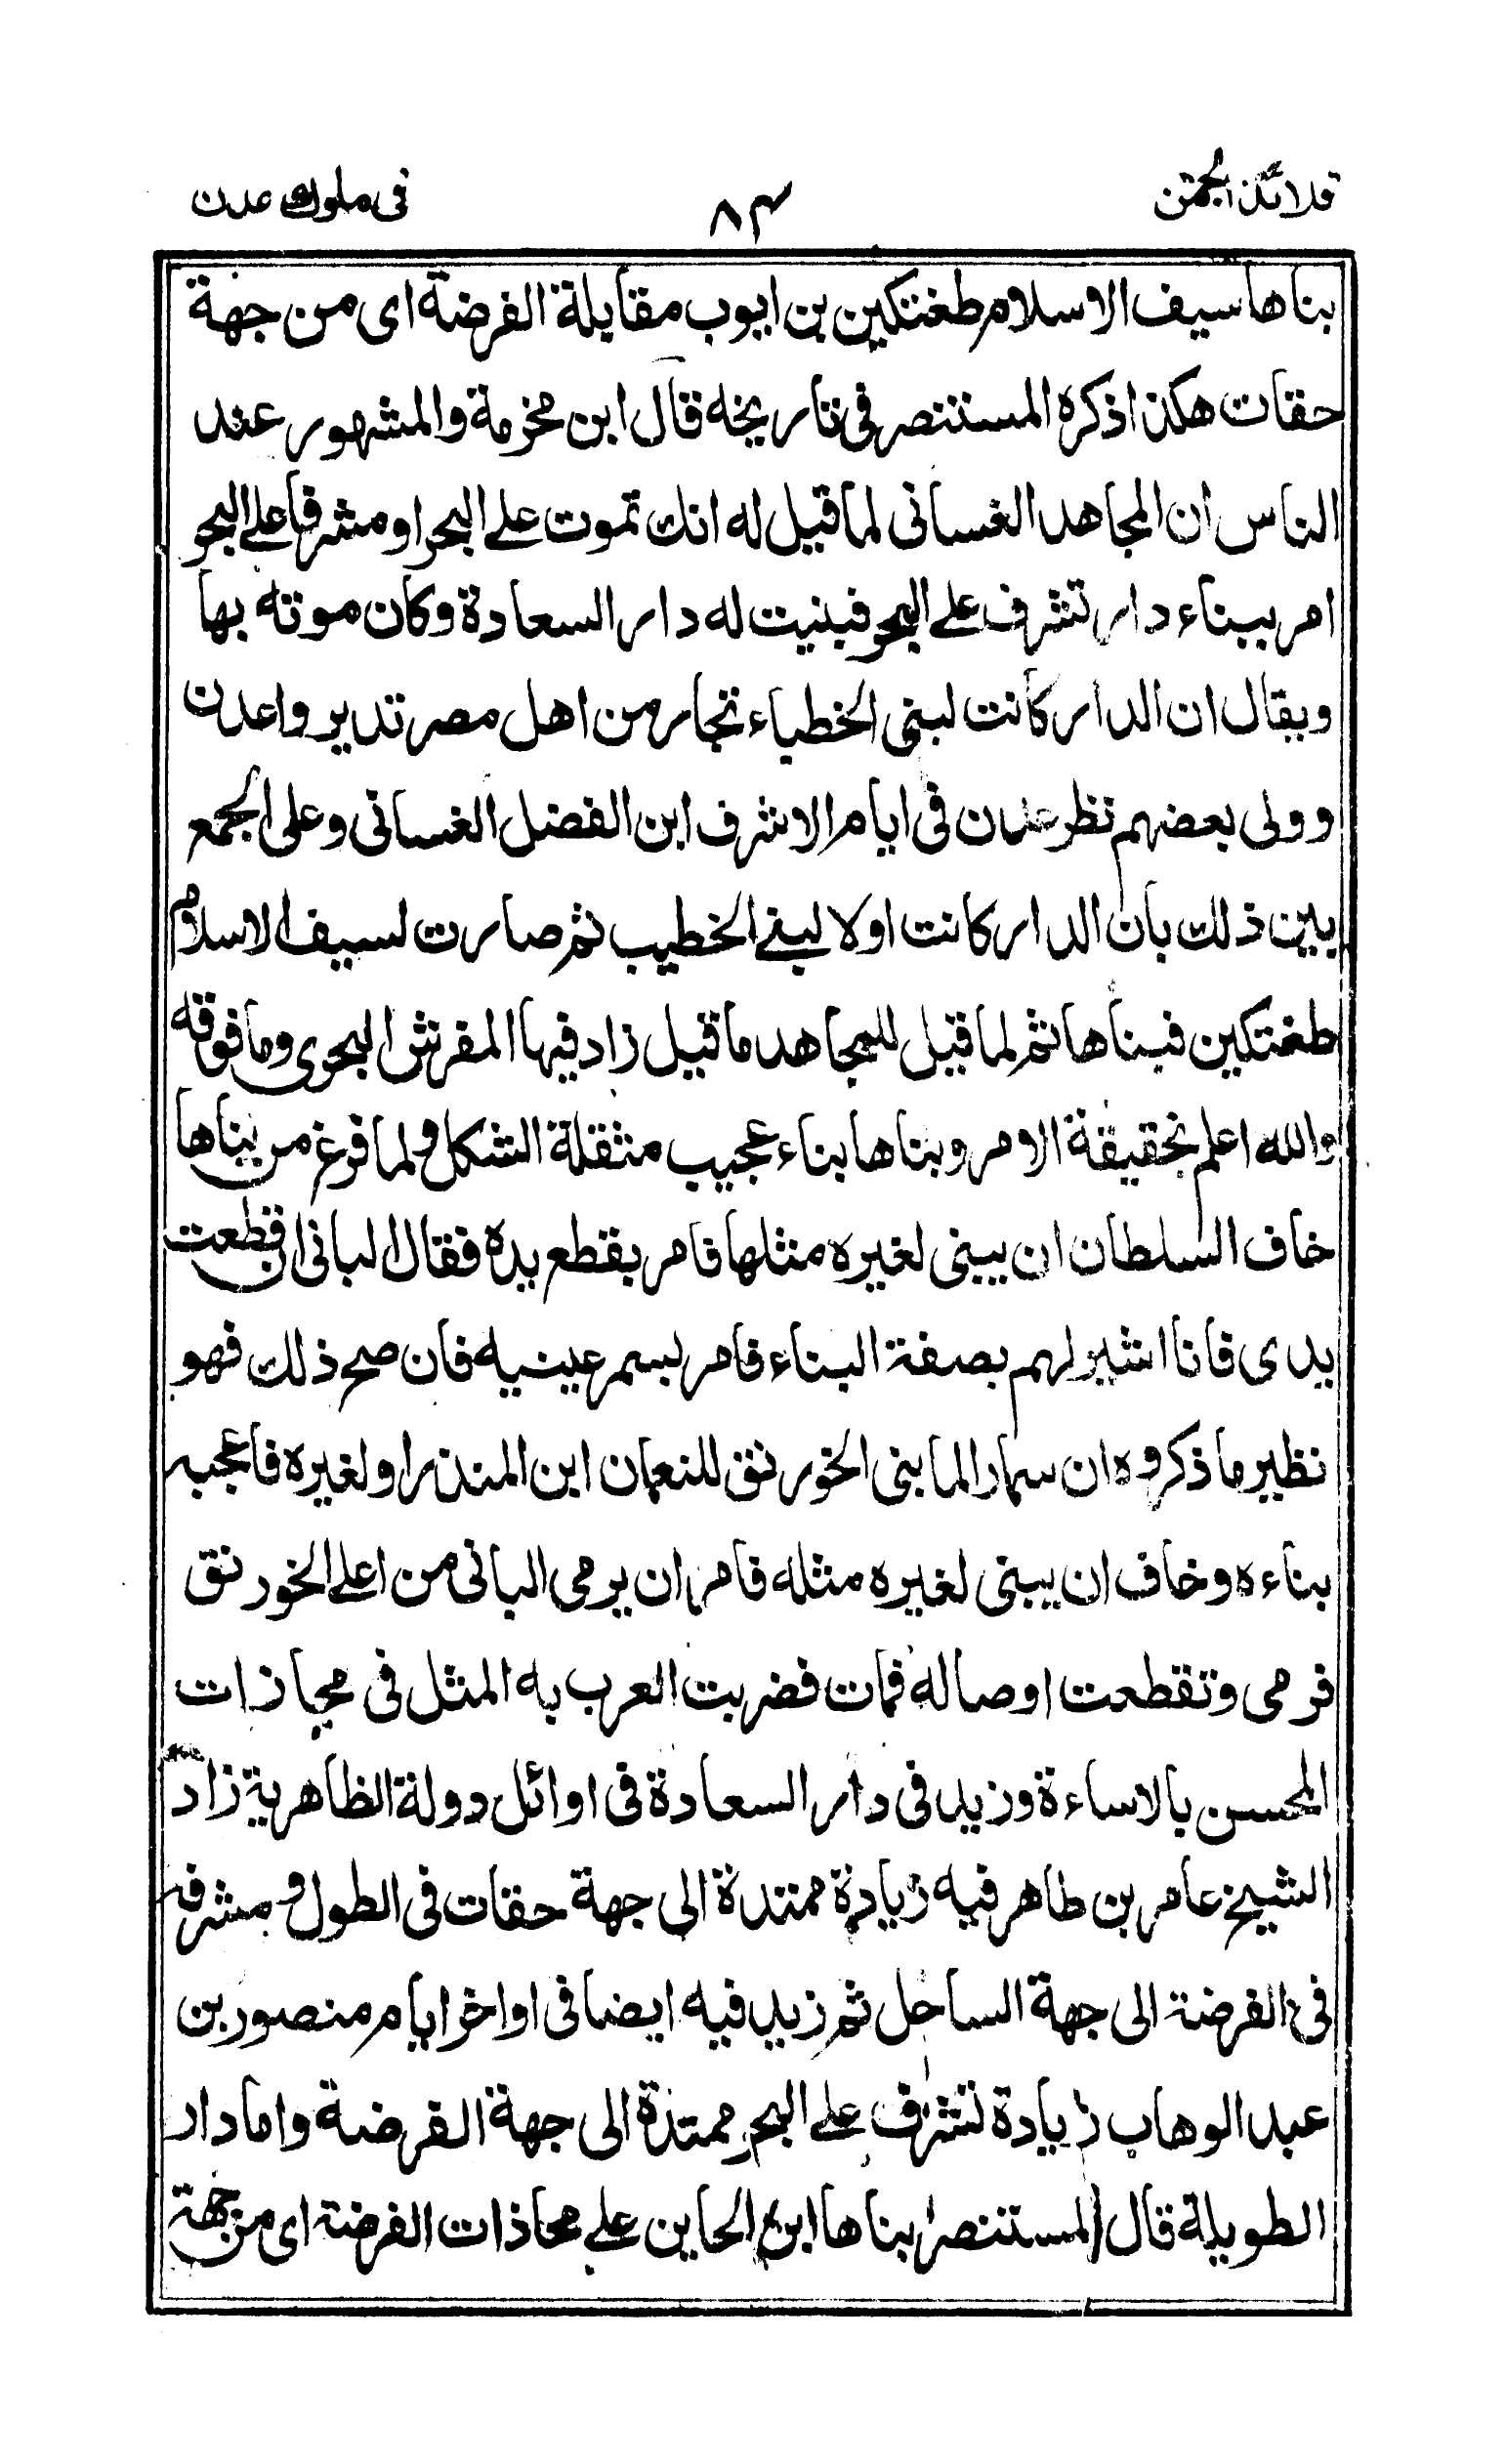 قلائد الجمن ٨٣ في ملوك عدن
بناها سيف الاسلام طغتكين بن ايوب مقابلة الفرضة اى من جهة
حقات هكذا ذكره المستنصر فى تاريخه قال ابن مخرمة والمشهور عند
الناس ان المجاهد الغسانى لما قيل له انك تموت على البحر او مشرفا على البحر
امر ببناء دار تشرف على البحر فبنيت له دار السعادة وكان موته بها
ويقال ان الدار كانت لبنى الخطباء تجار من اهل مصر تديروا عدن
وولى بعضهم نظر عدن فى ايام الاشرف ابن الفضل الغسانى وعلى الجمع
بين ذلك بان الدار كانت اولا لبنى الخطيب ثم صارت لسيف الاسلام
طغتكين فبناها ثم لما قيل للمجاهد ما قيل زاد فيها المفرش البحرى وما فوقه
والله اعلم بحقيقة الامر وبناها بناء عجيب مثقلة الشكل ولما فرغ من بناها
خاف السلطان ان يبنى لغيره مثلها فامر بقطع يده فقال البانى ان قطعت
يدى فانا اشير لهم بصفة البناء فامر بسمر عينيه فان صح ذلك فهو
نظير ما ذكروه ان سمار لما بنى الخورنق للنعمان ابن المنذر او لغيره فاعجبه
بناءه وخاف ان يبنى لغيره مثله فامر ان يرمى البانى من اعلى الخورنق
فرمى وتقطعت اوصاله فمات فضربت العرب به المثل فى مجازات
المحسن بالاساءة وزيد فى دار السعادة فى اوائل دولة الظاهرية زاد
الشيخ عامر بن طاهر فيه زيادة ممتدة الى جهة حقات فى الطول و مشرفه
فى الفرضة الى جهة الساحل ثم زيد فيه ايضا فى اواخر ايام منصور بن
عبد الوهاب زيادة تشرف على البحر ممتدة الى جهة الفرضة واما دار
الطويلة قال المستنصر بناها ابن الحاين على محاذات الفرضة اى من جهة